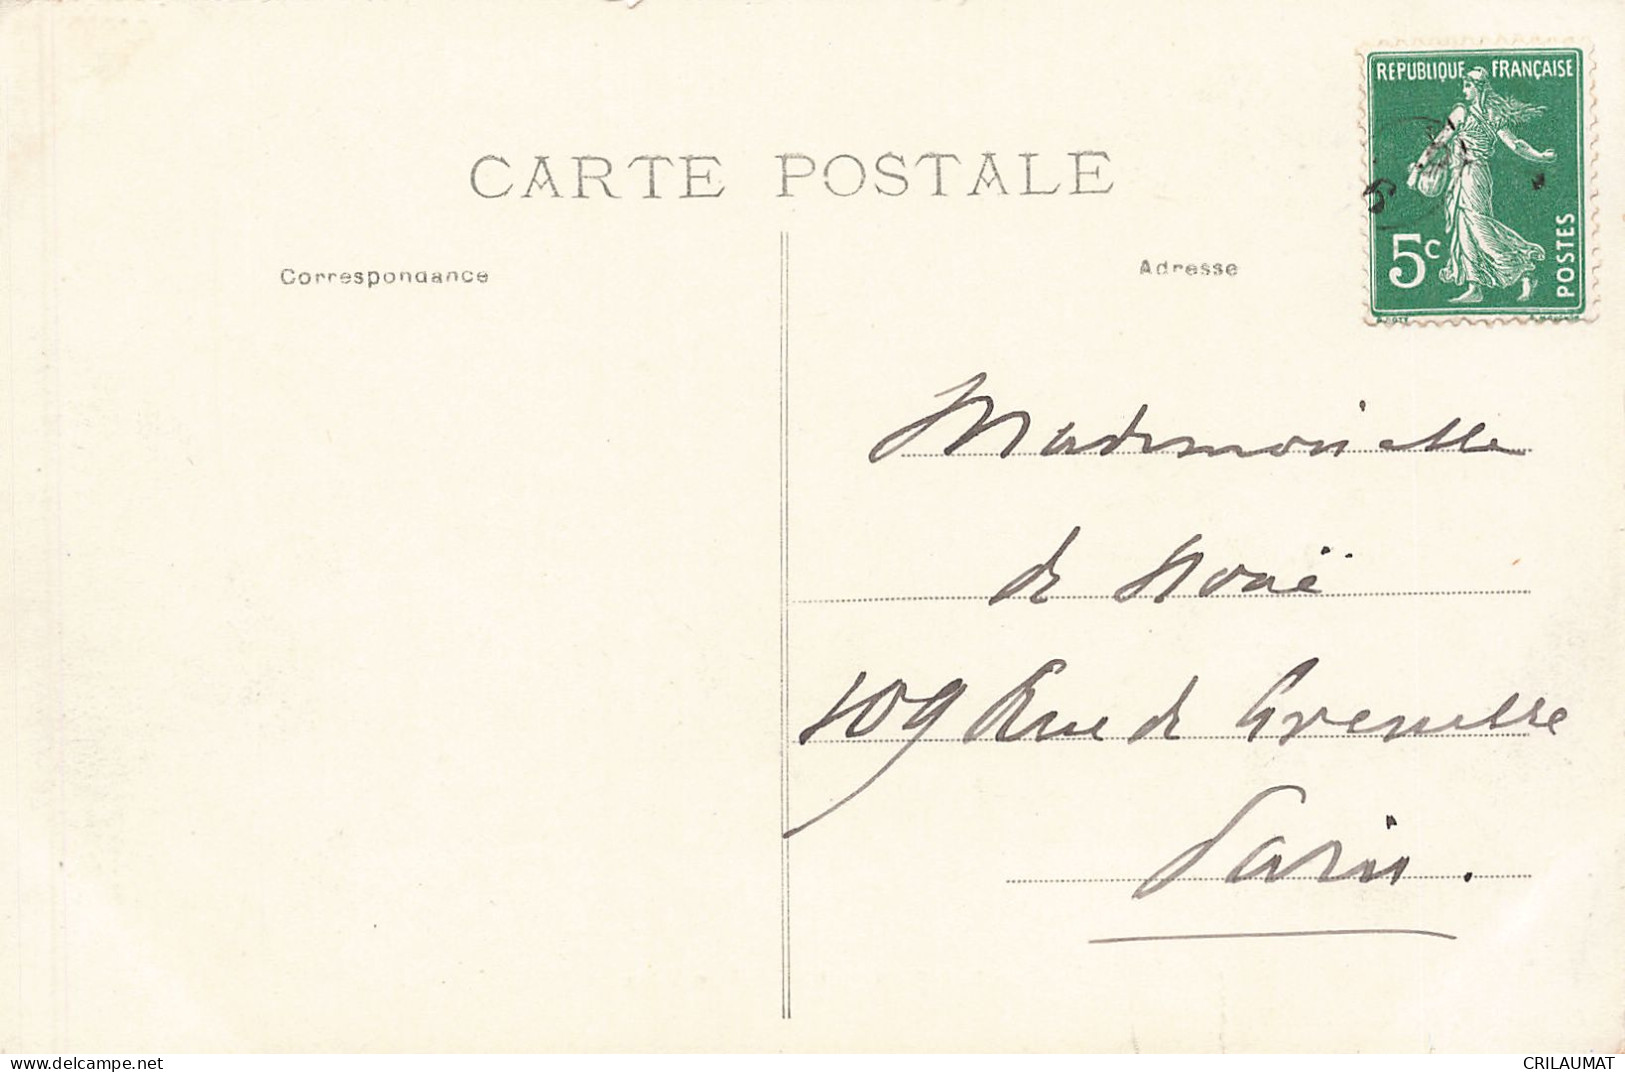 CARTE POSTALE
Correspondance
Adresse
REPUBLIQUE FRANÇAISE
5c
POSTES
Mademoiselle
de Nouë
109 Rue de Grenelle
Paris.
www.delcampe.net
CRILAUMAT